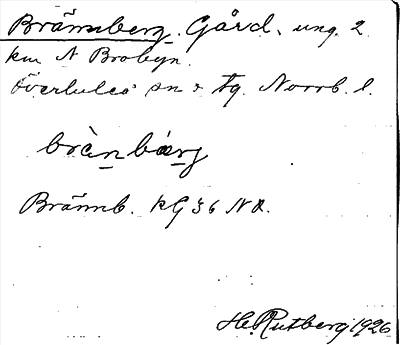 Brännberg. Gård, ung. 2
km N Brobyn.
Överluleå sn o tg. Norrb. l.
brȁn bǽrg
Brännb. kG 36 NO.
H. Rutberg 1926